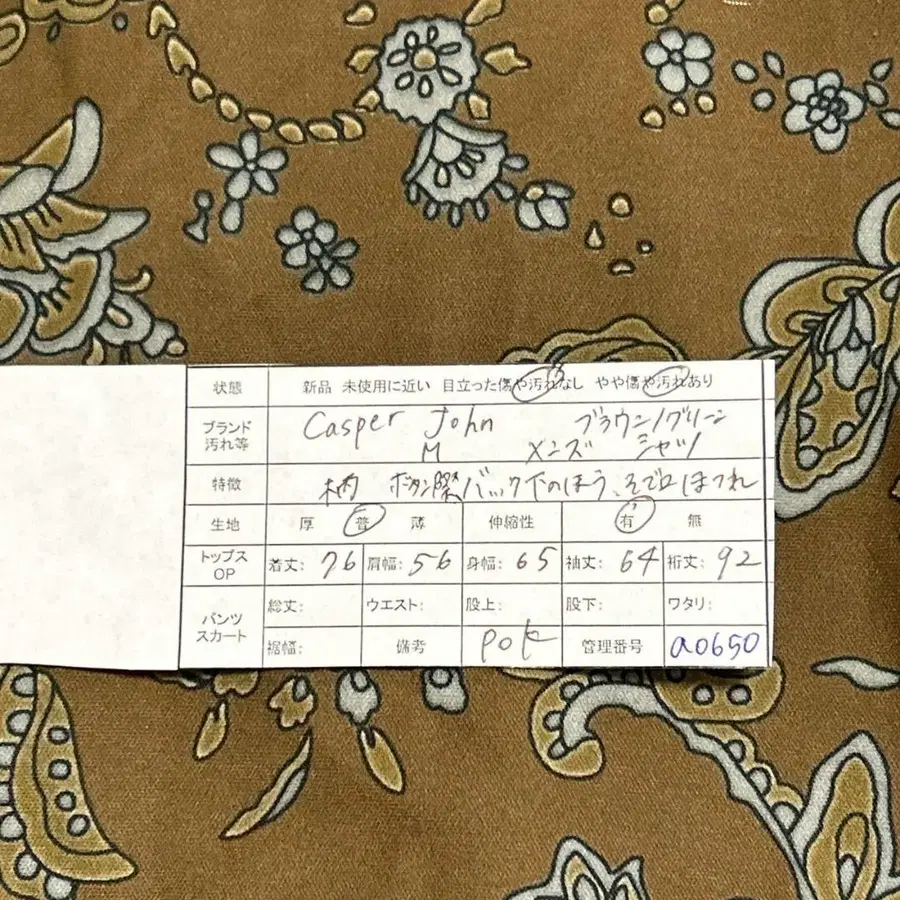 状態 新品 未使用に近い 目立った傷や汚れなし やや傷や汚れあり
ブランド 汚れ等 Casper John ブラウン/グリーン
M メンズ シャツ
特徴 柄 ボタン隙 バック下のほう、そで口ほつれ
生地 厚 普 薄 伸縮性 有 無
トップス OP 着丈: 76 肩幅: 56 身幅: 65 袖丈: 64 裄丈: 92
パンツ スカート 総丈: ウエスト: 股上: 股下: ワタリ:
裾幅: 備考 pok 管理番号 a0650